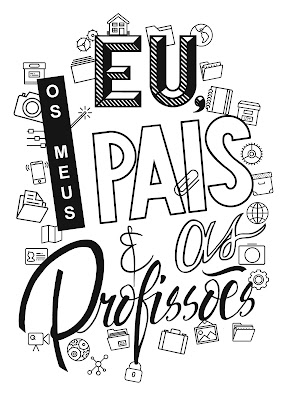 EU,
OS MEUS
PAIS
& as
Profissões